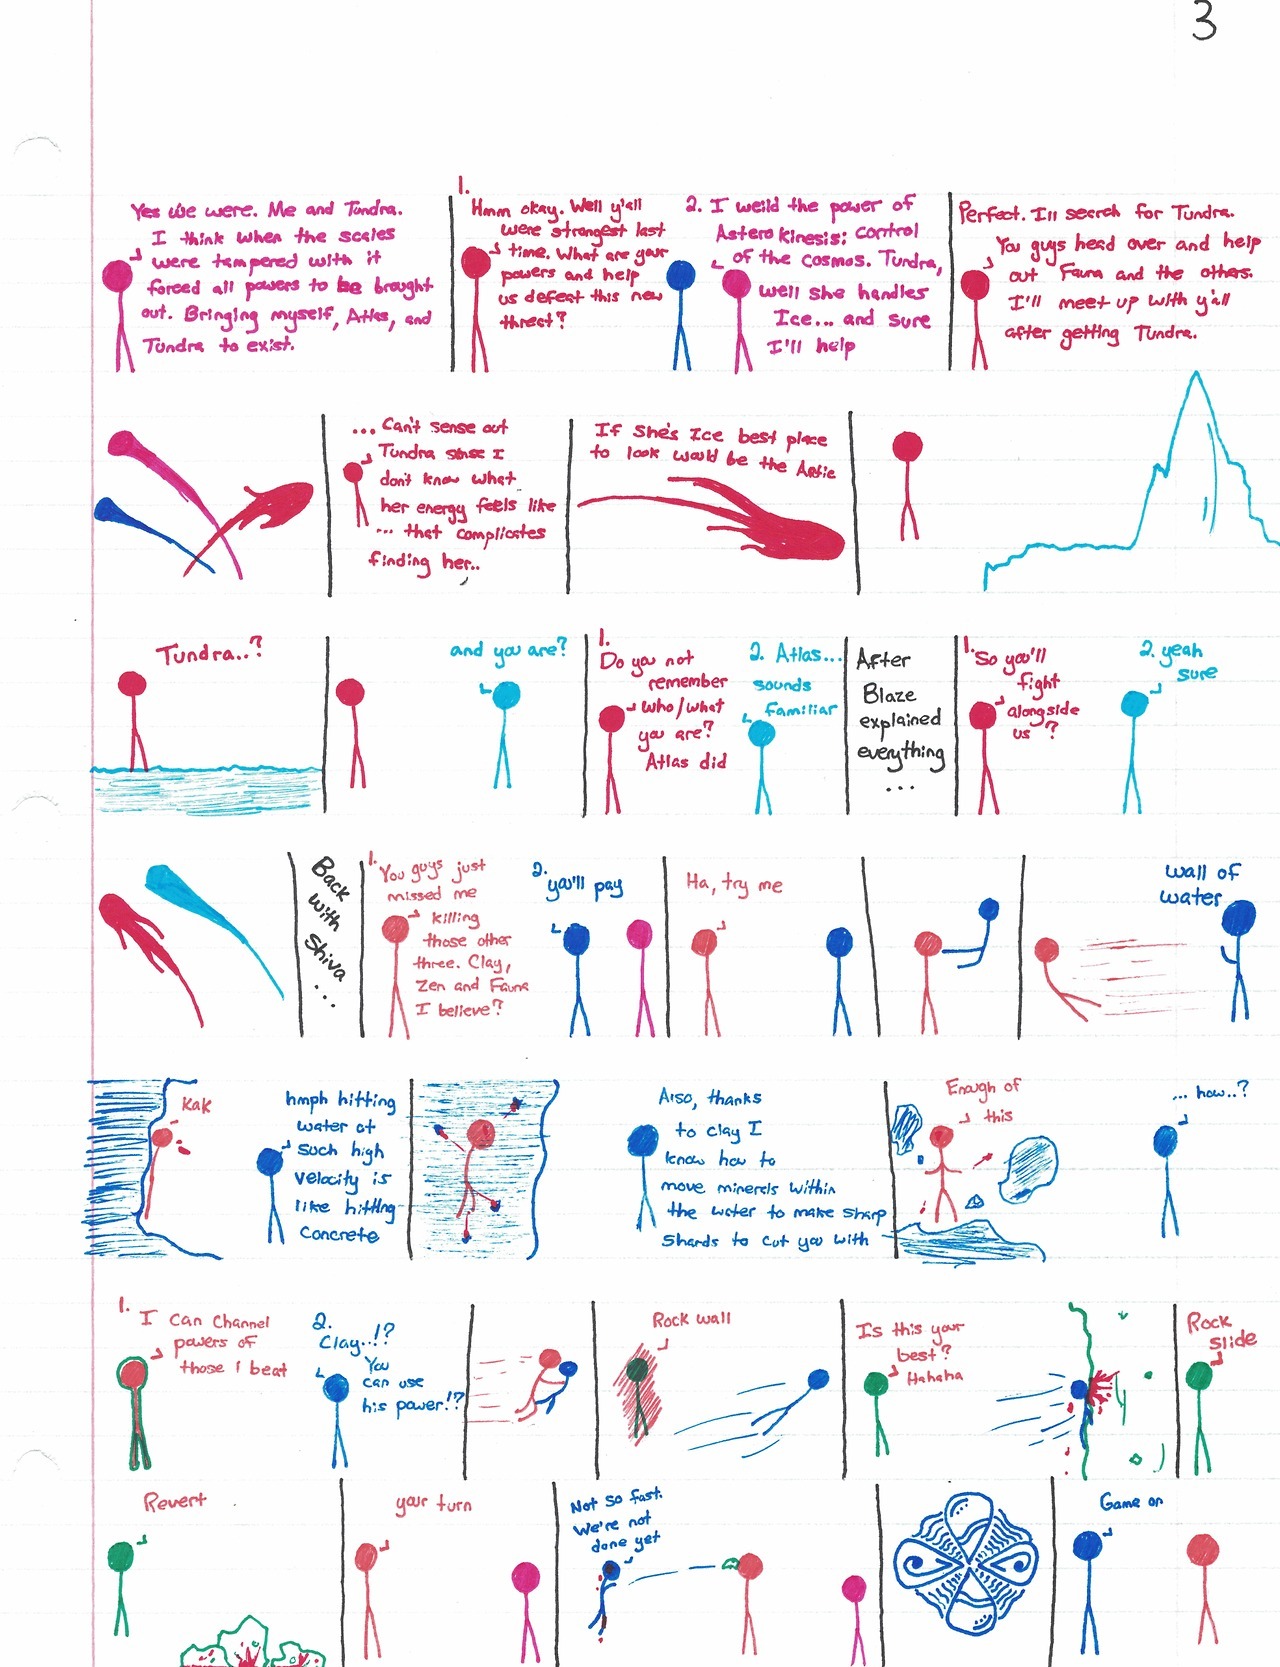 3
Yes we were. Me and Tundra.
I think when the scales
were tampered with it
forced all powers to be brought
out. Bringing myself, Atlas, and
Tundra to exist.
1.
Hmm okay. Well y'all
were strongest last
time. What are your
powers and help
us defeat this new
threat?
2. I weild the power of
Asterokinesis; control
of the cosmos. Tundra,
well she handles
Ice... and sure
I'll help
Perfect. I'll search for Tundra.
You guys head over and help
out Fauna and the others.
I'll meet up with y'all
after getting Tundra.
... Can't sense out
Tundra sinse I
don't know what
her energy feels like
... that complicates
finding her..
If she's Ice best place
to look would be the Artic
Tundra..?
and you are?
1.
Do you not
remember
who/what
you are?
Atlas did
2. Atlas...
sounds
familiar
After
Blaze
explained
everything
...
1.
So you'll
fight
alongside
us?
2. yeah
sure
Back
with
Shiva
...
1.
You guys just
missed me
killing
those other
three. Clay,
Zen and Fauna
I believe?
2.
you'll pay
Ha, try me
wall of
water
Kak
hmph hitting
water at
such high
velocity is
like hitting
concrete
Also, thanks
to clay I
know how to
move minerals within
the water to make sharp
shards to cut you with
Enough of
this
... how..?
1.
I can channel
powers of
those I beat
2.
Clay..!?
You
can use
his power!?
Rock wall
Is this your
best?
Hahaha
Rock
slide
Revert
your turn
Not so fast.
We're not
done yet
Game on